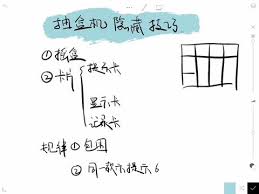 抽盒机隐藏技巧
①摇盒
②卡片
提示卡
显示卡
记录卡
规律①包围
②同一款不提示6